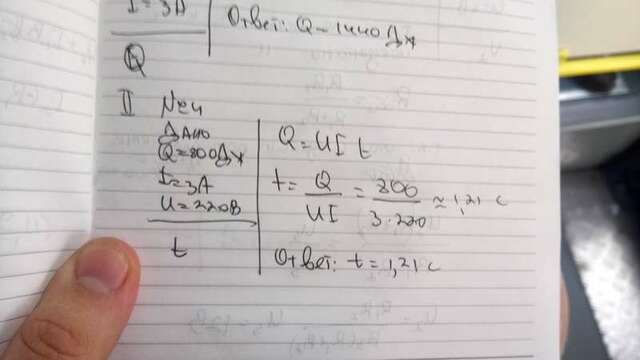 I = 3A
Ответ: Q - 1440 Дж
Q
II №4
Дано
Q = 800 Дж
I = 3A
U = 220В
t
Q = UI t
t = Q / UI = 800 / 3·220 ≈ 1,21 с
Ответ: t = 1,21 с